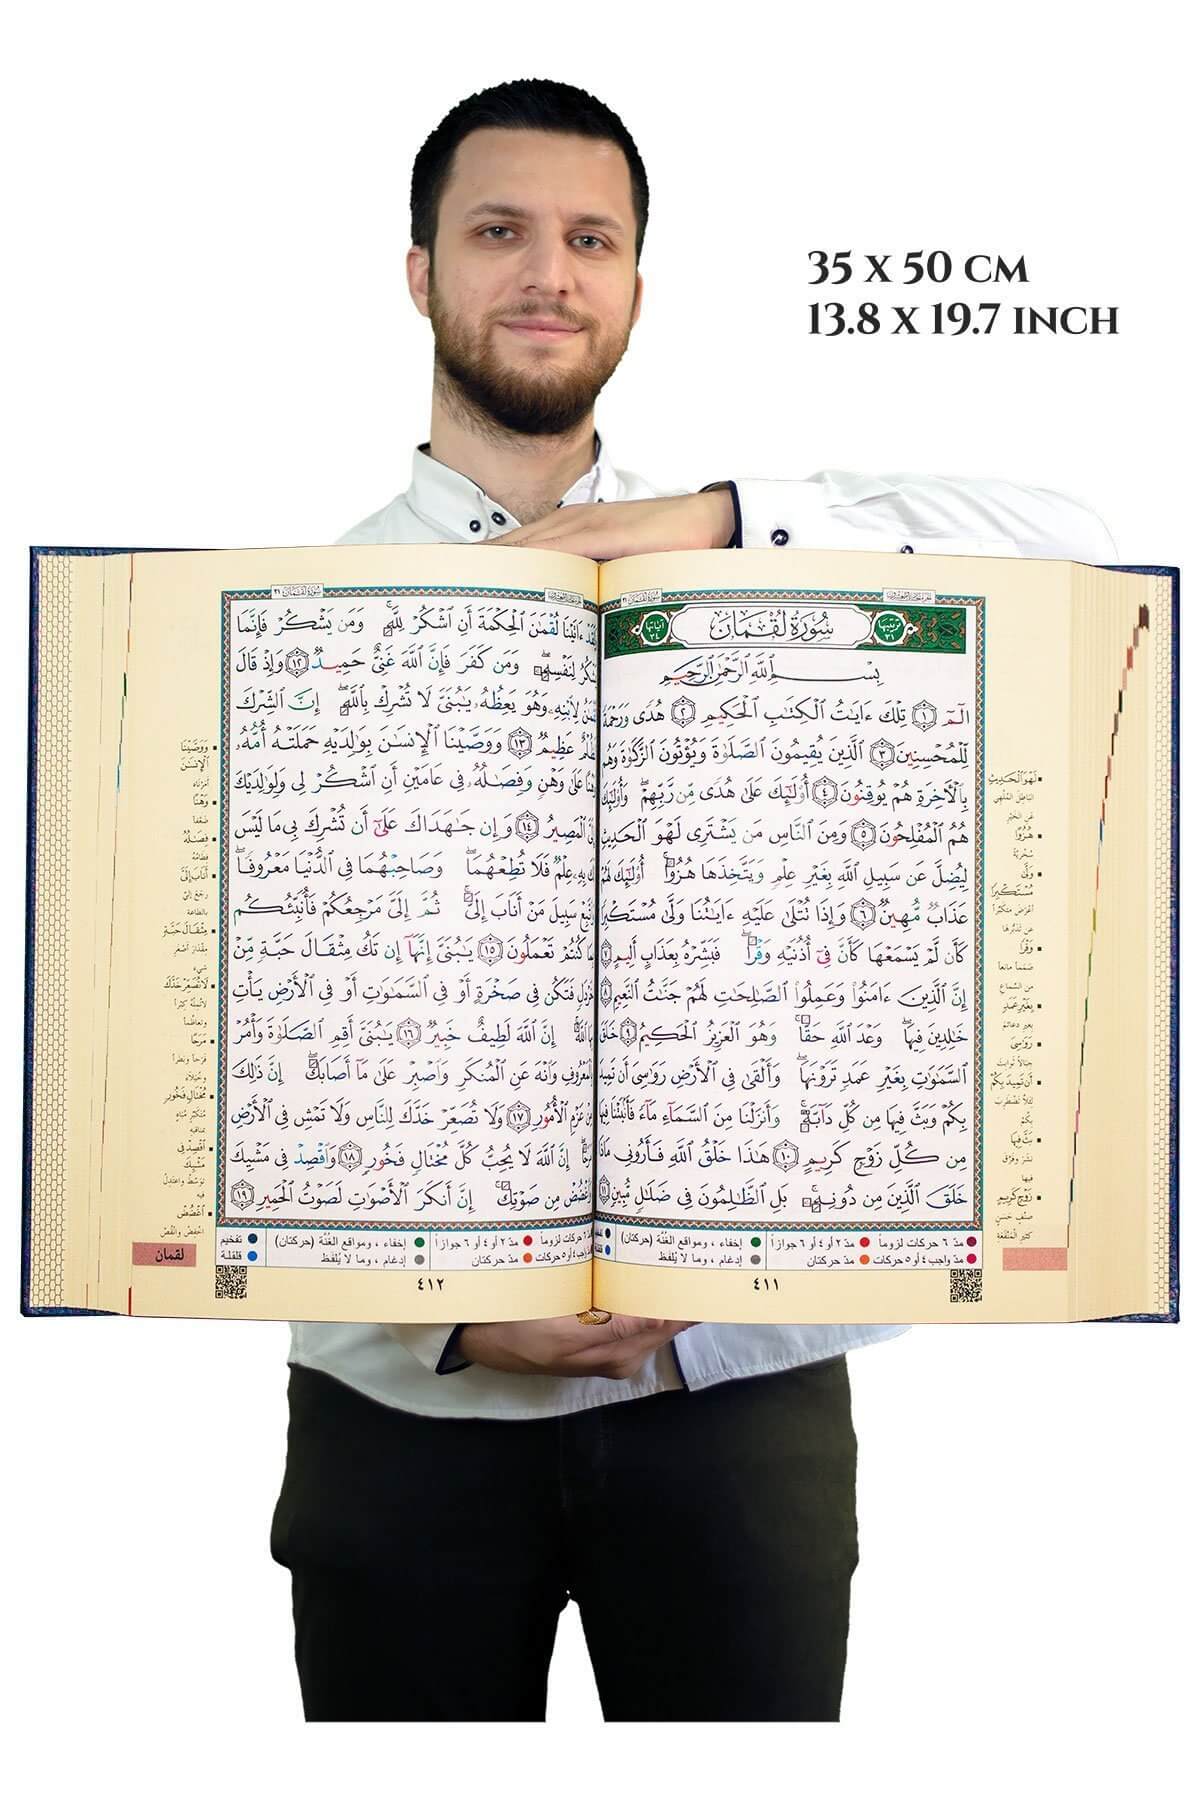 35 x 50 cm
13.8 x 19.7 inch
سورة لقمان ٣١
ترتيبها ٣١
سُورَةُ لُقْمَان
آياتها ٣٤
بِسْمِ اللَّهِ الرَّحْمَٰنِ الرَّحِيمِ
الٓمٓ ۝١ تِلْكَ ءَايَٰتُ ٱلْكِتَٰبِ ٱلْحَكِيمِ ۝٢ هُدًى وَرَحْمَةً
لِّلْمُحْسِنِينَ ۝٣ ٱلَّذِينَ يُقِيمُونَ ٱلصَّلَوٰةَ وَيُؤْتُونَ ٱلزَّكَوٰةَ وَهُم
بِٱلْءَاخِرَةِ هُمْ يُوقِنُونَ ۝٤ أُو۟لَٰٓئِكَ عَلَىٰ هُدًى مِّن رَّبِّهِمْ ۖ وَأُو۟لَٰٓئِكَ
هُمُ ٱلْمُفْلِحُونَ ۝٥ وَمِنَ ٱلنَّاسِ مَن يَشْتَرِى لَهْوَ ٱلْحَدِيثِ
لِيُضِلَّ عَن سَبِيلِ ٱللَّهِ بِغَيْرِ عِلْمٍ وَيَتَّخِذَهَا هُزُوًا ۚ أُو۟لَٰٓئِكَ لَهُمْ
عَذَابٌ مُّهِينٌ ۝٦ وَإِذَا تُتْلَىٰ عَلَيْهِ ءَايَٰتُنَا وَلَّىٰ مُسْتَكْبِرًا
كَأَن لَّمْ يَسْمَعْهَا كَأَنَّ فِىٓ أُذُنَيْهِ وَقْرًا ۖ فَبَشِّرْهُ بِعَذَابٍ أَلِيمٍ ۝٧
إِنَّ ٱلَّذِينَ ءَامَنُوا۟ وَعَمِلُوا۟ ٱلصَّٰلِحَٰتِ لَهُمْ جَنَّٰتُ ٱلنَّعِيمِ ۝٨
خَٰلِدِينَ فِيهَا ۖ وَعْدَ ٱللَّهِ حَقًّا ۚ وَهُوَ ٱلْعَزِيزُ ٱلْحَكِيمُ ۝٩ خَلَقَ
ٱلسَّمَٰوَٰتِ بِغَيْرِ عَمَدٍ تَرَوْنَهَا ۖ وَأَلْقَىٰ فِى ٱلْأَرْضِ رَوَٰسِىَ أَن تَمِيدَ
بِكُمْ وَبَثَّ فِيهَا مِن كُلِّ دَآبَّةٍ ۚ وَأَنزَلْنَا مِنَ ٱلسَّمَآءِ مَآءً فَأَنۢبَتْنَا فِيهَا
مِن كُلِّ زَوْجٍ كَرِيمٍ ۝١٠ هَٰذَا خَلْقُ ٱللَّهِ فَأَرُونِى مَاذَا
خَلَقَ ٱلَّذِينَ مِن دُونِهِۦ ۚ بَلِ ٱلظَّٰلِمُونَ فِى ضَلَٰلٍ مُّبِينٍ ۝١١
لَهْوَ ٱلْحَدِيثِ
هُزُوًا
وَلَّىٰ مُسْتَكْبِرًا
وَقْرًا
بِغَيْرِ عَمَدٍ
رَوَٰسِىَ
أَن تَمِيدَ بِكُمْ
بَثَّ فِيهَا
زَوْجٍ كَرِيمٍ
مدّ ٦ حركات لزوماً مدّ ٢ أو ٤ أو ٦ جوازاً إخفاء ، ومواقع الغُنّة (حركتان)
مدّ واجب ٤ أو ٥ حركات مدّ حركتان إدغام ، وما لا يُلفظ
٤١١
سورة لقمان ٣١
وَلَقَدْ ءَاتَيْنَا لُقْمَٰنَ ٱلْحِكْمَةَ أَنِ ٱشْكُرْ لِلَّهِ ۚ وَمَن يَشْكُرْ فَإِنَّمَا
يَشْكُرُ لِنَفْسِهِۦ ۖ وَمَن كَفَرَ فَإِنَّ ٱللَّهَ غَنِىٌّ حَمِيدٌ ۝١٢ وَإِذْ قَالَ
لُقْمَٰنُ لِٱبْنِهِۦ وَهُوَ يَعِظُهُۥ يَٰبُنَىَّ لَا تُشْرِكْ بِٱللَّهِ ۖ إِنَّ ٱلشِّرْكَ
لَظُلْمٌ عَظِيمٌ ۝١٣ وَوَصَّيْنَا ٱلْإِنسَٰنَ بِوَٰلِدَيْهِ حَمَلَتْهُ أُمُّهُۥ
وَهْنًا عَلَىٰ وَهْنٍ وَفِصَٰلُهُۥ فِى عَامَيْنِ أَنِ ٱشْكُرْ لِى وَلِوَٰلِدَيْكَ
إِلَىَّ ٱلْمَصِيرُ ۝١٤ وَإِن جَٰهَدَاكَ عَلَىٰٓ أَن تُشْرِكَ بِى مَا لَيْسَ
لَكَ بِهِۦ عِلْمٌ فَلَا تُطِعْهُمَا ۖ وَصَاحِبْهُمَا فِى ٱلدُّنْيَا مَعْرُوفًا ۖ
وَٱتَّبِعْ سَبِيلَ مَنْ أَنَابَ إِلَىَّ ۚ ثُمَّ إِلَىَّ مَرْجِعُكُمْ فَأُنَبِّئُكُم
بِمَا كُنتُمْ تَعْمَلُونَ ۝١٥ يَٰبُنَىَّ إِنَّهَآ إِن تَكُ مِثْقَالَ حَبَّةٍ مِّنْ
خَرْدَلٍ فَتَكُن فِى صَخْرَةٍ أَوْ فِى ٱلسَّمَٰوَٰتِ أَوْ فِى ٱلْأَرْضِ يَأْتِ
بِهَا ٱللَّهُ ۚ إِنَّ ٱللَّهَ لَطِيفٌ خَبِيرٌ ۝١٦ يَٰبُنَىَّ أَقِمِ ٱلصَّلَوٰةَ وَأْمُرْ
بِٱلْمَعْرُوفِ وَٱنْهَ عَنِ ٱلْمُنكَرِ وَٱصْبِرْ عَلَىٰ مَآ أَصَابَكَ ۖ إِنَّ ذَٰلِكَ
مِنْ عَزْمِ ٱلْأُمُورِ ۝١٧ وَلَا تُصَعِّرْ خَدَّكَ لِلنَّاسِ وَلَا تَمْشِ فِى ٱلْأَرْضِ
مَرَحًا ۖ إِنَّ ٱللَّهَ لَا يُحِبُّ كُلَّ مُخْتَالٍ فَخُورٍ ۝١٨ وَٱقْصِدْ فِى مَشْيِكَ
وَٱغْضُضْ مِن صَوْتِكَ ۚ إِنَّ أَنكَرَ ٱلْأَصْوَٰتِ لَصَوْتُ ٱلْحَمِيرِ ۝١٩
وَوَصَّيْنَا ٱلْإِنسَٰنَ
وَهْنًا
فِصَٰلُهُۥ
أَنَابَ إِلَىَّ
مِثْقَالَ حَبَّةٍ
لَا تُصَعِّرْ خَدَّكَ
مَرَحًا
مُخْتَالٍ فَخُورٍ
ٱقْصِدْ فِى مَشْيِكَ
ٱغْضُضْ
لقمان
٦ حركات لزوماً مدّ ٢ أو ٤ أو ٦ جوازاً إخفاء ، ومواقع الغُنّة (حركتان) تفخيم
واجب ٤ أو ٥ حركات مدّ حركتان إدغام ، وما لا يُلفظ قلقلة
٤١٢